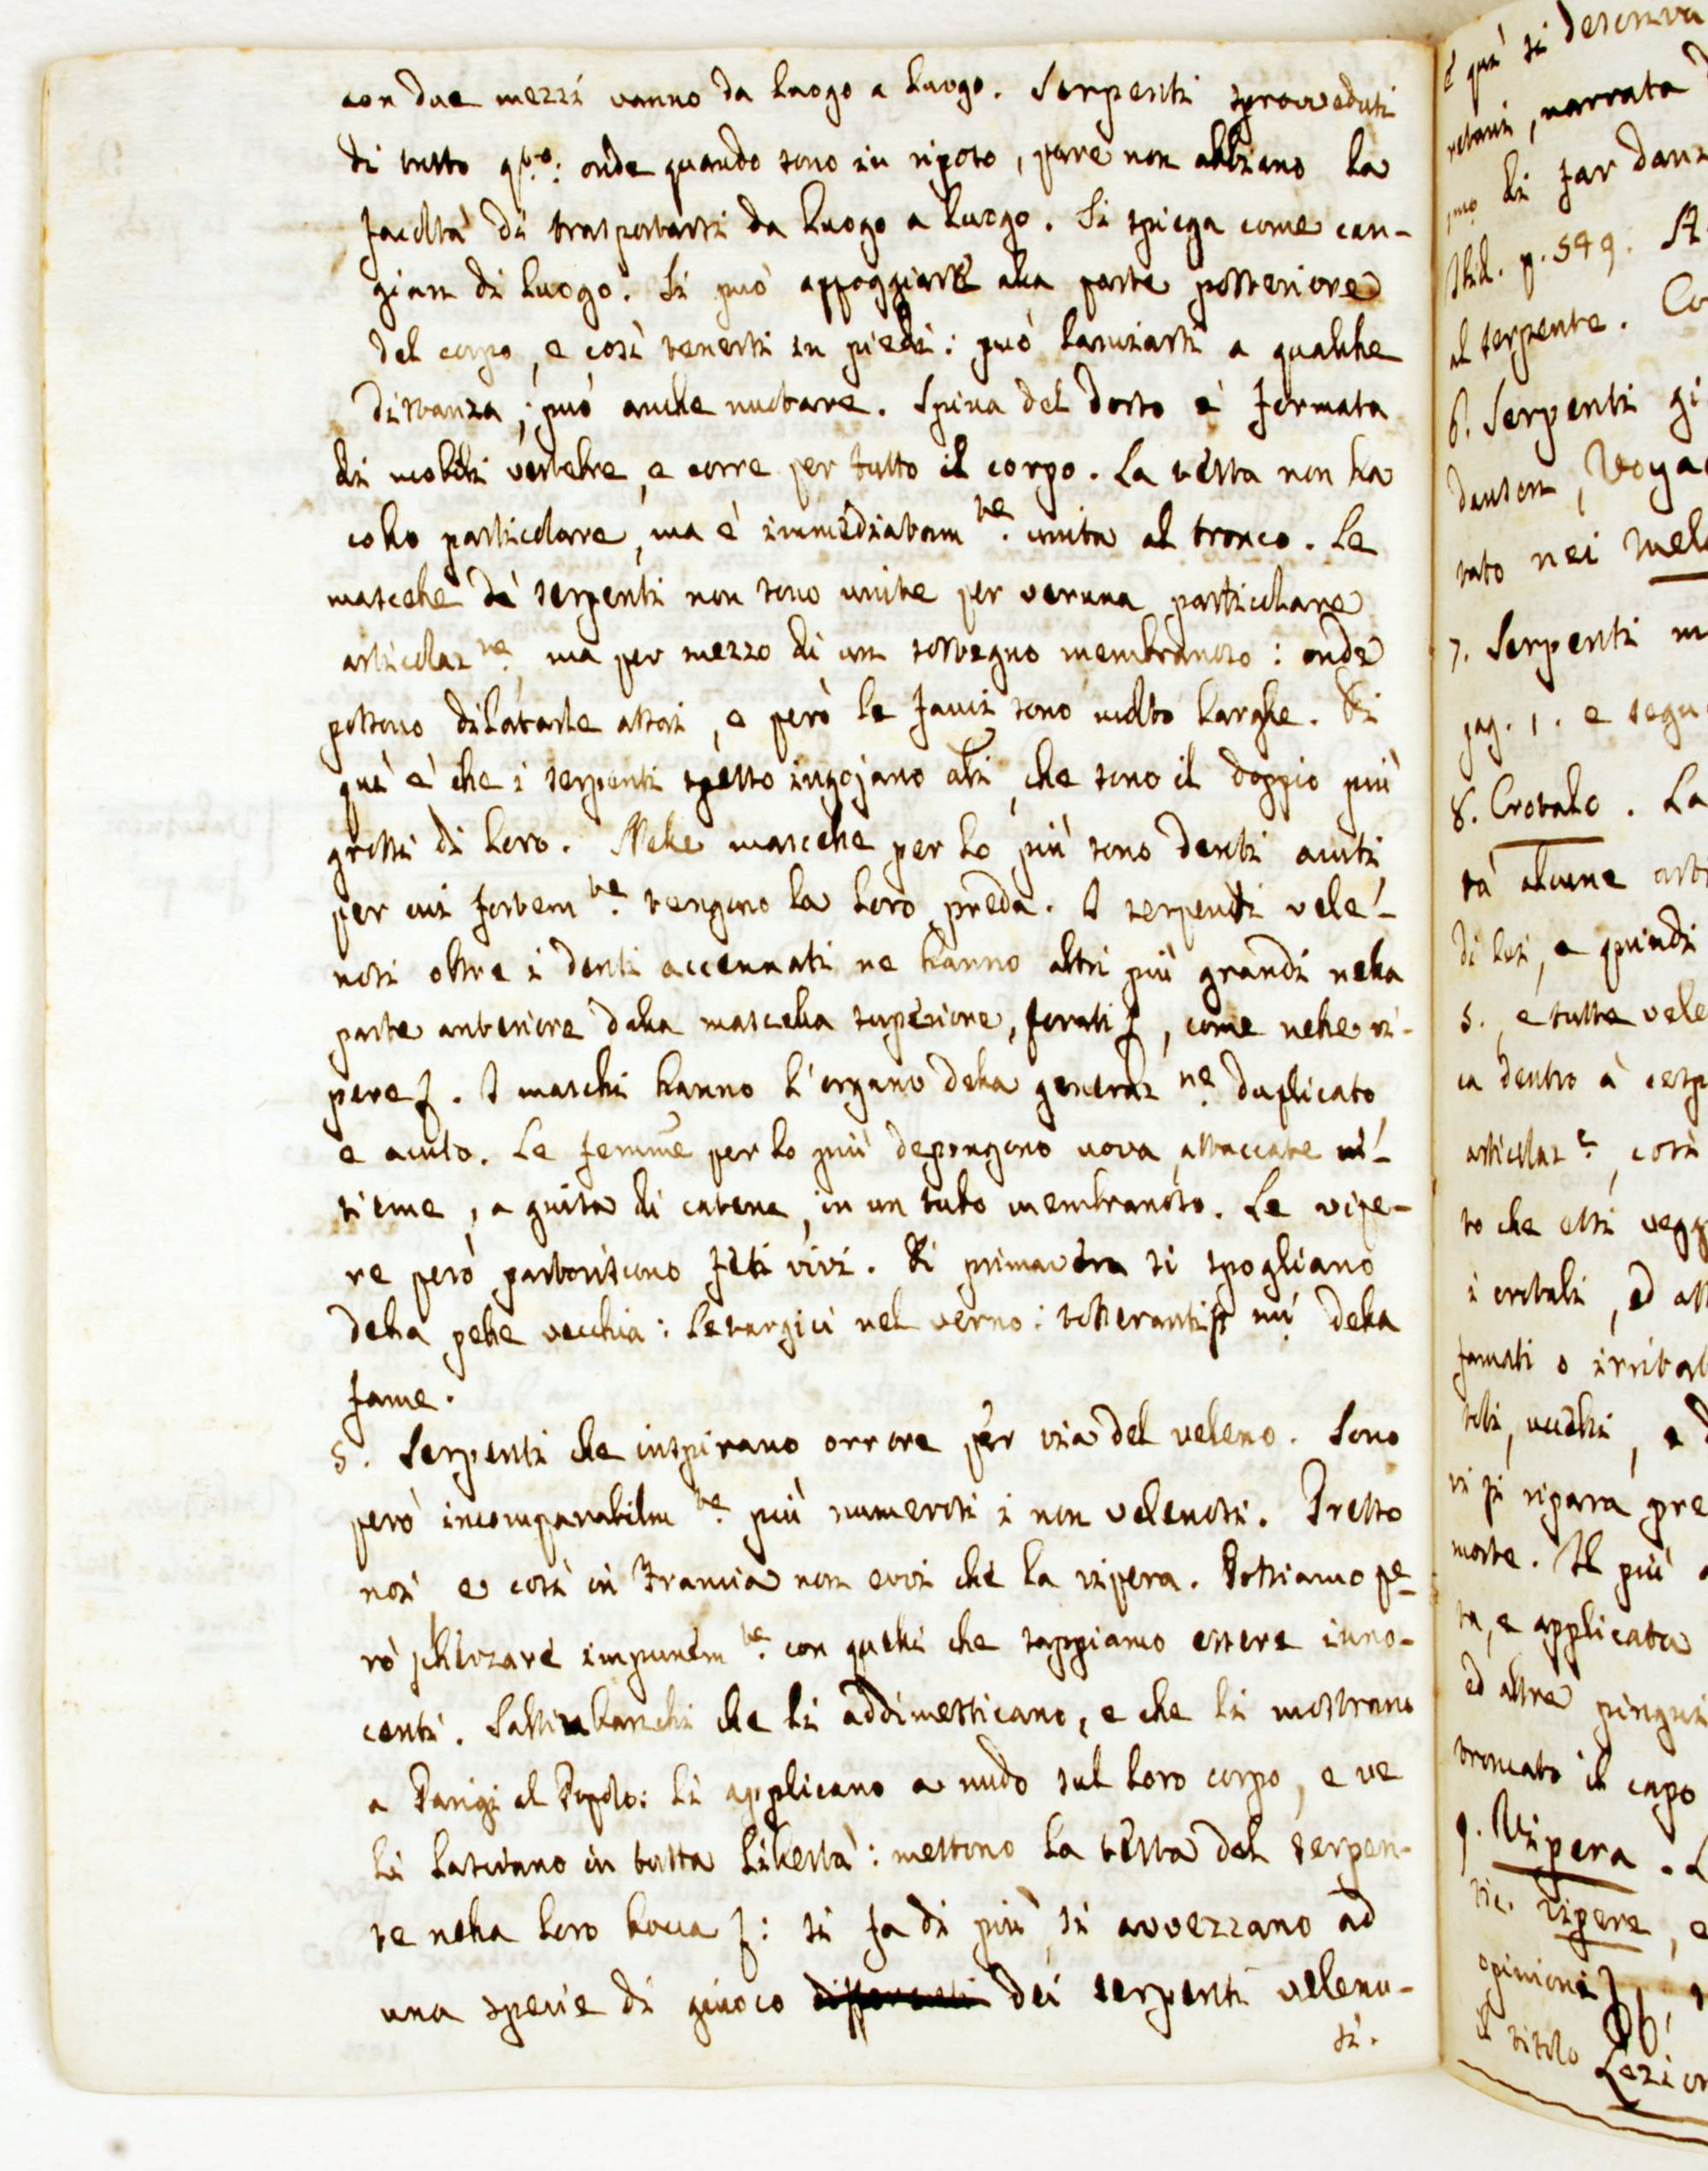 con due mezzi vanno da luogo a luogo. Serpenti sprovveduti
di tutto q.to: onde quando sono in riposo, pare non abbiano la
facoltà di trasportarsi da luogo a luogo. Si spiega come can-
gian di luogo. Si può appoggiare alla parte posteriore
del corpo, e così tenersi in piedi: può lanciarsi a qualche
distanza; può anche nuotare. Spina del dorso è formata
di mobili vertebre, e corre per tutto il corpo. La testa non ha
collo particolare, ma è immediatam.te unita al tronco. Le
mascelle de' serpenti non sono unite per veruna particolare
articolaz.ne, ma per mezzo di un sostegno membranoso: onde
possono dilatarle assai, e però le fauci sono molto larghe. Di
quì è che i serpenti spesso ingojano altri, che sono il doppio più
grossi di loro. Nelle mascelle per lo più sono denti acuti,
per cui fortem.te tengono la loro preda. I serpenti vele-
nosi oltre i denti accennati ne hanno altri più grandi nella
parte anteriore della mascella superiore, forati, come nelle vi-
pere. I maschi hanno l'organo della generaz.ne duplicato,
e acuto. Le femine per lo più depongono uova attaccate in-
sieme, a guisa di catena, in un tubo membranoso. Le vipe-
re però partoriscono feti vivi. Di primavera si spogliano
della pelle vecchia: letargici nel verno: tolleranti della
fame.
5. Serpenti che inspirano orrore per via del veleno. Sono
però incomparabilm.te più numerosi i non velenosi. Presso
noi e così in Francia non evvi che la vipera. Possiamo pe-
rò scherzare impunem.te con quelli che sappiamo essere inno-
centi. Saltimbanchi che li addimesticano, e che li mostrano
a Parigi al Popolo: li applicano a nudo sul loro corpo, e ve
li lasciano in tutta libertà: mettono la testa del serpen-
te nella loro bocca: si fa di più, si avvezzano ad
una specie di giuoco dei serpenti veleno-
si.
è quì si
narrata
di far danz
Ibid. p. 549.
al serpente.
6. Serpenti gi
danson, Voya
tato nei
7. Serpenti m
pag. 1. e segu
8. Crotalo. La
alcune
di lui, e quindi
5., e tutte vele
ca dentro a
articolaz, così
to che essi vegg
i crotali, ed
famati o
vecchi,
si ripara
morte. Il più
e applicata
ed altre pingui
troncato il capo
9. Vipera.
Vipere,
opinione
il titolo Lezion